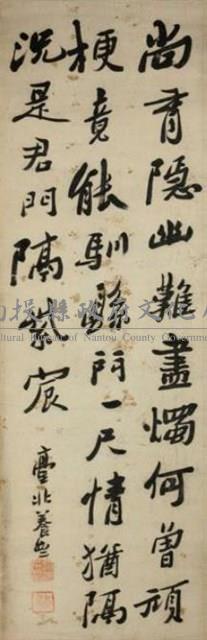 尚有隱幽難盡燭何曾頑
梗竟能馴縣門一尺情猶隔
況是君門隔紫宸
臺北養
投縣政府文化
Bureau of Nantou County